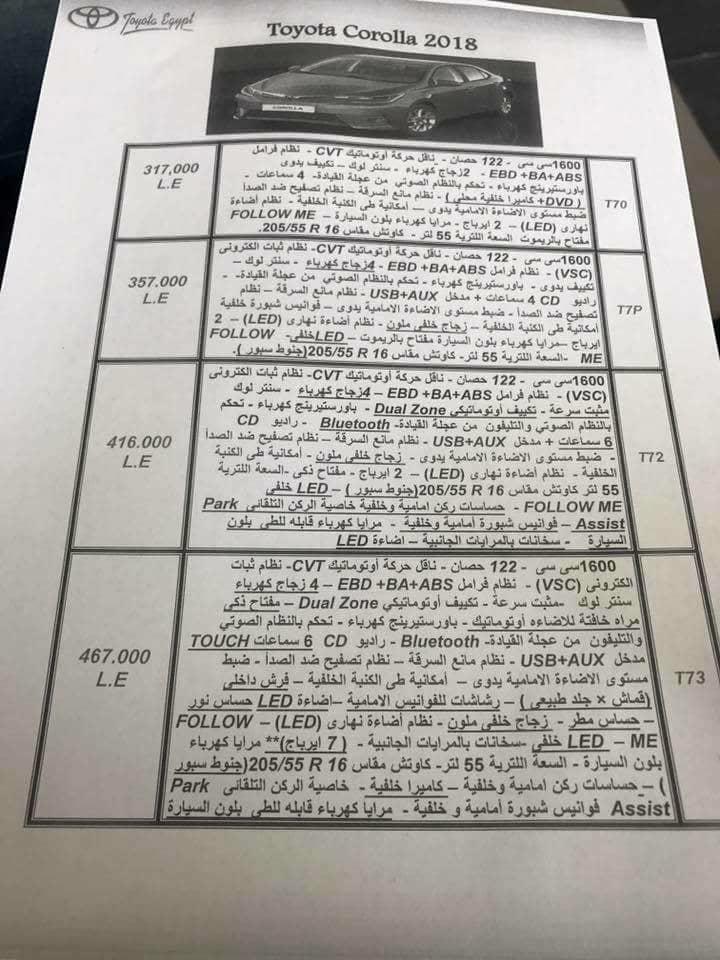 Toyota Egypt
Toyota Corolla 2018
COROLLA
T70
1600سى سى - 122 حصان - ناقل حركة أوتوماتيك CVT - نظام فرامل
EBD +BA+ABS - 2زجاج كهرباء - سنتر لوك - تكييف يدوى
باورستيرينج كهرباء - تحكم بالنظام الصوتي من عجلة القيادة- 4 سماعات -
(DVD+ كاميرا خلفية محلى) - نظام مانع السرقة – نظام تصفيح ضد الصدأ
ضبط مستوى الاضاءة الامامية يدوى – أمكانية طى الكنبة الخلفية - نظام أضاءة
نهارى (LED) – 2 ايرباج - مرايا كهرباء بلون السيارة – FOLLOW ME
مفتاح بالريموت السعة اللترية 55 لتر - كاوتش مقاس 205/55 R 16.
317,000
L.E
T7P
1600سى سى - 122 حصان - ناقل حركة أوتوماتيك CVT- نظام ثبات الكترونى
(VSC) - نظام فرامل EBD +BA+ABS - 4زجاج كهرباء - سنتر لوك –
تكييف يدوى - باورستيرينج كهرباء - تحكم بالنظام الصوتي من عجلة القيادة-
راديو CD 4 سماعات + مدخل USB+AUX - نظام مانع السرقة – نظام
تصفيح ضد الصدأ - ضبط مستوى الاضاءة الامامية يدوى – فوانيس شبورة خلفية
أمكانية طى الكنبة الخلفية – زجاج خلفى ملون - نظام أضاءة نهارى (LED) – 2
ايرباج –مرايا كهرباء بلون السيارة مفتاح بالريموت – LEDخلفى- FOLLOW
ME -السعة اللترية 55 لتر- كاوتش مقاس 205/55 R 16(جنوط سبور ).
357.000
L.E
T72
1600سى سى - 122 حصان - ناقل حركة أوتوماتيك CVT- نظام ثبات الكترونى
(VSC) - نظام فرامل EBD +BA+ABS – 4زجاج كهرباء - سنتر لوك
مثبت سرعة - تكييف أوتوماتيكي Dual Zone - باورستيرينج كهرباء - تحكم
بالنظام الصوتي والتليفون من عجلة القيادة- Bluetooth - راديو CD
6 سماعات + مدخل USB+AUX - نظام مانع السرقة – نظام تصفيح ضد الصدأ
- ضبط مستوى الاضاءة الامامية يدوى – زجاج خلفى ملون - أمكانية طى الكنبة
الخلفية - نظام أضاءة نهارى (LED) – 2 ايرباج - مفتاح ذكى -السعة اللترية
55 لتر كاوتش مقاس 205/55 R 16(جنوط سبور ) – LED خلفي
FOLLOW ME - حساسات ركن امامية وخلفية خاصية الركن التلقائى Park
Assist – فوانيس شبورة أمامية وخلفية - مرايا كهرباء قابله للطى بلون
السيارة - سخانات بالمرايات الجانبية – اضاءة LED
416.000
L.E
T73
1600سى سى - 122 حصان - ناقل حركة أوتوماتيك CVT- نظام ثبات
الكترونى (VSC) - نظام فرامل EBD +BA+ABS – 4 زجاج كهرباء
سنتر لوك -مثبت سرعة - تكييف أوتوماتيكي Dual Zone – مفتاح ذكى
مراه خافتة للاضاءه أوتوماتيك - باورستيرينج كهرباء - تحكم بالنظام الصوتي
والتليفون من عجلة القيادة- Bluetooth - راديو CD 6 سماعات TOUCH
مدخل USB+AUX - نظام مانع السرقة – نظام تصفيح ضد الصدأ - ضبط
مستوى الاضاءة الامامية يدوى – أمكانية طى الكنبة الخلفية – فرش داخلى
(قماش × جلد طبيعى) – رشاشات للفوانيس الامامية –اضاءة LED حساس نور
– حساس مطر - زجاج خلفى ملون - نظام أضاءة نهارى (LED) – FOLLOW
ME – LED خلفي -سخانات بالمرايات الجانبية - ( 7 ايرباج)** مرايا كهرباء
بلون السيارة - السعة اللترية 55 لتر- كاوتش مقاس 205/55 R 16(جنوط سبور
) – حساسات ركن امامية وخلفية – كاميرا خلفية - خاصية الركن التلقائى Park
Assist فوانيس شبورة أمامية و خلفية - مرايا كهرباء قابله للطى بلون السيارة
467.000
L.E